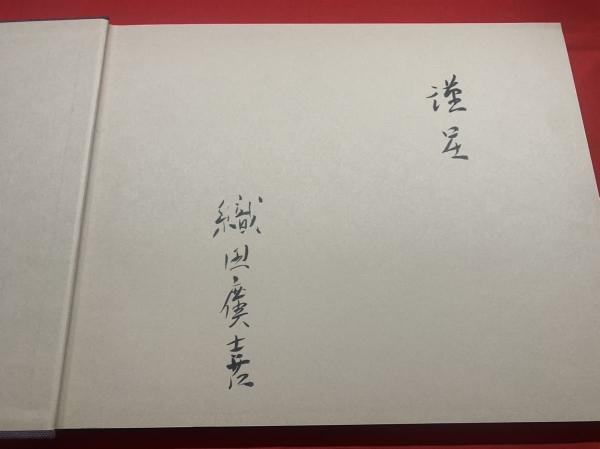 謹呈
織田廣喜